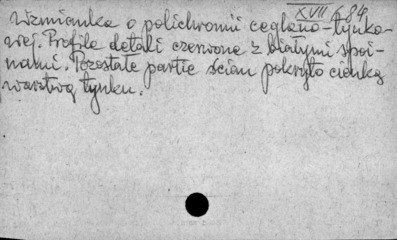 XVII 684
Wzmianka o polichromii ceglano-tynko-
wej. Profile detali czerwone z białymi spoi-
nami. Pozostałe partie ścian pokryto cienką
warstwą tynku.